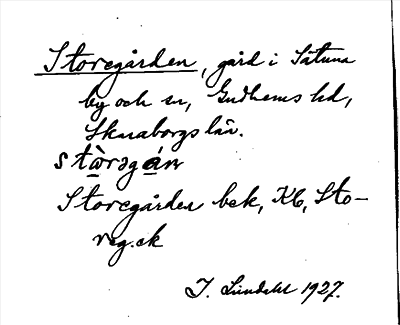 Storegården, gård i Sätuna
by och sn, Gudhems hd,
Skaraborgs län.
stὰrəgán
Storegården bek, Kb, Sto-
reg.ek
I. Lundahl 1927.